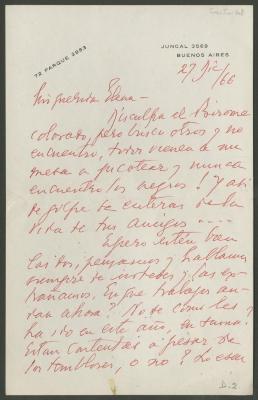 72 PARQUE 3983
JUNCAL 3569
BUENOS AIRES
27 Dic/66
Mi querida Elena -
Disculpa el
colorado, pero busco otros y no
encuentro, todos vienen a mi
mesa a picotear y nunca
encuentro los negros! Y asi
de golpe te enteras de la
vida de tus amigos ....
Espero esten bien
pensamos y hablamos
siempre de ustedes y las
extrañamos. En que trabajos
andan ahora? No se como les
ha ido en este año, en
Estan contentas a pesar de
los temblores, o no?
D-2